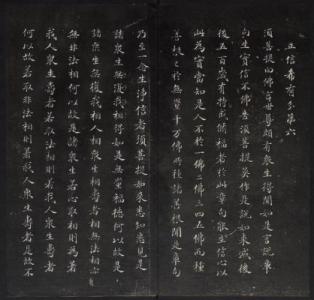 正信希有分第六
須菩提白佛言世尊頗有衆生得聞如是言說章
句生實信不佛告須菩提莫作是說如來滅後
後五百歲有持戒修福者於此章句能生信心以
此為實當知是人不於一佛二佛三四五佛而種
善根已於無量千萬佛所種諸善根聞是章句
乃至一念生淨信者須菩提如來悉知悉見是
諸衆生無復我相得如是無量福德何以故是
諸衆生無復我相人相衆生相壽者相無法相亦
無非法相何以故是諸衆生若心取相則為著
我人衆生壽者若取法相即著我人衆生壽者
何以故若取非法相即著我人衆生壽者是故不